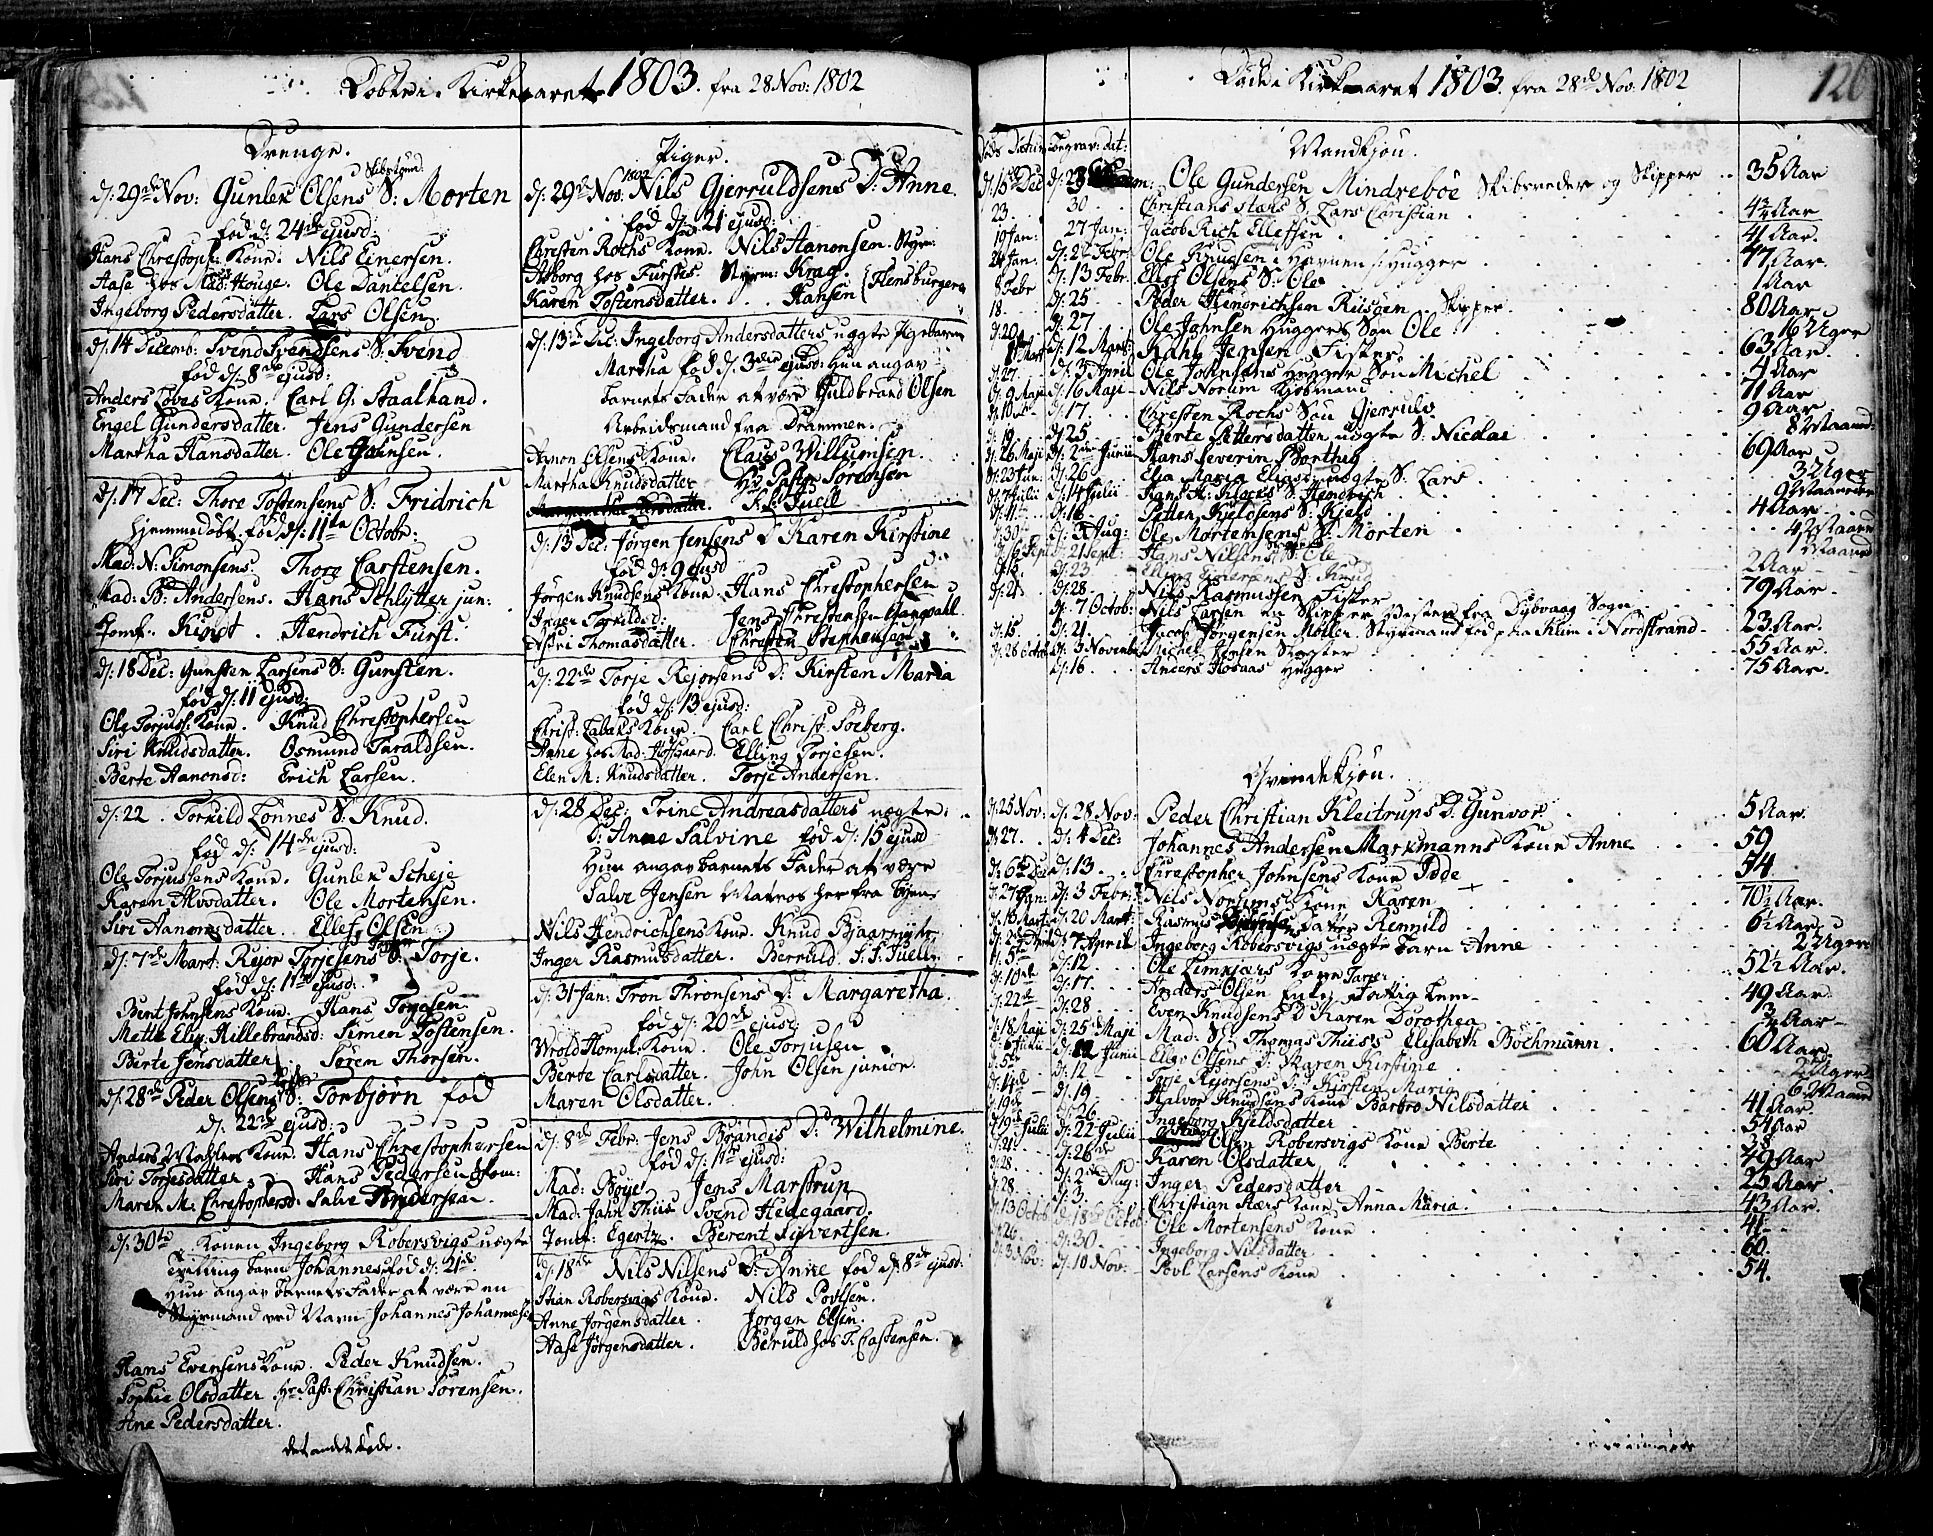 Døbte i Kirkeaaret 1803. fra 28 Nov: 1802
Drenge.
d: 29de Nov: Gunder Olsens S: Morten
fød d: 24de ejusd:
Hans Christoph: Kone. Nils Einersen.
Aase hos Mad: Houge. Ole Danielsen.
Ingeborg Pedersdatter. Lars Olsen.
d: 14 Decemb: Svend Svendsens S: Svend
fød d: 8de ejusd:
Anders Koves Kone. Carl G: Staalhand.
Engel Gundersdatter. Jens Gundersen
Martha Hansdatter. Ole Johnsen.
d: 17 Dec: Thore Tostensens S: Fridrich
hjemmedøbt. fød d: 11te Octobr:
Mad: N. Simonsens. Thore Carstensen.
Mad: B: Andersens. Hans Schlytter jun:
Jomf: Kindt. Hendrich Fürst.
d: 18 Dec: Gunsten Larsens S: Gunsten.
fød d: 11 ejusd:
Ole Torjus: Kone. Knud Christophersen
Siri Knudsdatter. Osmund Taraldsen.
Berte Aanonsd: Erich Larsen.
d: 22. Torkild Lønnes S: Knud.
fød d: 14de ejusd:
Ole Torjussens Kone. Gunder Scheje
Karen Alvsdatter. Ole Mortensen.
Siri Aanonsdatter. Ellef Olsen
d: 7de Mart: Rejor Torjesens S: Torje.
fød d: 1te ejusd:
Bent Johnsens Kone. Hans Torjesen
Mette Elis: Hillebrandsd: Simen Tostensen.
Berte Jensdatter. Søren Thorsen.
d: 28de Peder Olsens S: Torbjørn fød
d: 22de ejusd:
Anders Mæhlers Kone. Hans Christophersen
Siri Torjesdatter. Hans Pedersen
Maren M: Christophersd: Salve Andersen.
d: 30te Konen Ingeborg Robersvigs uægte
Tvilling barn Johannes fød d: 21de.
Hun angav barnets Fader at være en
Styrmand ved Navn Johannes Johannesen
Hans Evensens Kone. Peder Knudsen.
Sophie Olsdatter. Hr Past: Christian Sørensen.
Ane Pedersdatter.
det andet døde.
Piger.
d: 29de Nov: 1802 Nils Gjerruldsens D: Anne.
fød d: 21 ejusd:
Christen Rochs Kone. Nils Aanonsen. Styrm:
Aaborg hos Fürstes. Styrm: Krag.
Karen Tostensdatter. Hansen (Flensburgere
d: 13de Dec: Ingeborg Andersdatters uægte Pigebarn
Martha fød d: 3die ejusd: Hun angav
barnets Fader at være Guldbrand Olsen
Arbeidsmand fra Drammen.
Aanon Olsens Kone. Claus Willumsen.
Martha Knudsdatter Hr Pastor Sørensen
F. F. Juell
d: 13 Dec: Jørgen Jensens D: Karen Kirstine
fød d: 9 ejusd
Jørgen Knudsens Kone. Hans Christophersen
Inger Torkildsd: Jens
Astri Thomasdatter. Christen Stephensen
d: 22de Torje Rejorsens D: Kirsten Maria
fød d: 13 ejusd:
Christ: Tabaks Kone. Carl Christ: Søeberg.
Anne hos Mad: Hofgaard. Elling Torjesen.
Elen M: Knudsdatter. Torje Andersen.
d: 28 Dec: Trine Andreasdatters uægte
D: Anne Salvine fød d: 15 ejusd
Hun angav barnets Fader at være
Salve Jensen Matros her fra Byen.
Nils Hendrichsens Kone. Knud Bjaarmyhr
Inger Rasmusdatter. Berruld. F. F. Juell.
d: 31 Jan: Tron Thronsens D: Margaretha.
fød d: 20de ejusd:
Wrold Hompl: Kone. Ole Torjusen
Berte Carlsdatter. John Olsen junior.
Maren Olsdatter.
d: 8de Febr: Jens Brandis D: Wilhelmine.
fød d: 1te ejusd:
Mad: Bøye. Jens Marstrup
Mad: Jahn Thiis Svend Hedegaard.
Jomf: Egertz. Berent Syvertsen.
d: 18de Nils Nilsens D: Anne fød d: 8de ejusd:
Stian Robersvigs Kone. Nils Povlsen.
Anne Jørgensdatter. Jørgen Elsen.
Aase Jørgensdatter. Beruld hos T: Castensen.
Døde i Kirkeaaret 1803. fra 28de Nov: 1802
126
Døds Datum Begrav: dat: Mandkjøn.
d: 15 Dec Ole Gundersen Mindreboe Skibsreder og Skipper 35 Aar
23 30 Christian Stærs S. Lars Christian
19 Jan: 27 Jan: Jacob Rich Ellefsen 41 Aar.
24 Jan: d: 2 Febr: Ole Knudsen i Havnen Hugger 77 Aar.
8 Febr d: 13 Febr: Ellef Olsens S: Ole 1 Aar
18. d: 25 Peder Hendrichsen Riisøen Skipper 80 Aar
d: 20 d: 27 Ole Johnsen Huggers Søn Ole 16 Uger
8 Mart d: 12 Mart: Jensen Fister 63 Aar.
d: 27. d: 3 April Ole Johnsens Huggers Søn Michel 4 Aar
d: 9 Maji d: 16 Maji Nils Norum Kjøbmand 71 Aar
d: 10 d: 17. Christen Rochs Søn Gjerruld 9 Aar
d: 19 d: 25 Berte Pettersdatter uægte S: Nicolai 8 Maaned
d: 26 Maji d: 2den Junii Hans Severin Borthig 69 Aar
d: 23 Jun: d: 26 Elia Maria Eliasd: uægte S. Lars 3 Uger
d: 7 Julii d: 14 Julii Hans H: Klocks S: Hendrich 9 Maaneder
d: 11 d: 16 Petter Kjeldsens S: Kjeld 4 Aar
d: 30 d: 3 Aug: Ole Mortensens S: Morten
d: 16 Sept d: 21 Sept: Hans Nilsens S: Ole 1 Maaned
d: 18. d: 23 Einersens S: Knud 2 Aar
d: 24 d: 28 Nils Rasmussen Fister 79 Aar.
d: 7 Octob: Nils Larsen en Skipper Vesten fra Dybvaag Sogn
d: 15. d: 21. Jacob Jørgensen Møller. Styrmand fød paa Klim i Nordstrand 23 Aar.
d: 28 Octob d: 3 Novemb: Michel Jensen Slagter 55 Aar.
d: 16 Anders Hovaas Hugger 75 Aar.
Qvindekjøn.
d: 25 Nov: d: 28 Nov: Peder Christian Kleitrups D: Gunvor 5 Aar.
d: 27. d: 4 Dec: Johannes Andersen Markmanns Kone Anne 59
d: 6te Dec d: 13 Christopher Johnsens Kone Idde 54.
d: 27 Jan: d: 3 Febr: Nils Norums Kone Karen 70½ Aar.
d: 13 Mart d: 20 Mart: Rasmus Datter Rennild 6½ Aar
d: 7 April Ingeborg Robersvigs uægte Barn Anne 2 Uger
d: 5te d: 12 Ole Limkjærs Kone Taran 52½ Aar.
d: 10de d: 17. Anders Olsen Enke Fattig Lem 49 Aar.
d: 22de d: 28 Even Knudsens D Karen Dorothea
d: 18 Maji d: 25 Maji Mad: Sl: Thomas Thiis's Elisabeth Böchmann 60 Aar
d: 12 Junii Ellef Olsens D: Karen Kirstine
d: 12 Torje Rejorsens D: Kirsten Maria 6 Maaned
d: 14de d: 19 Halvor Knudsens Kone Barbro Nilsdatter 41 Aar
d: 19de d: 26 Ingeborg Kjeldsdatter 54 Aar
d: 19de Julii d: 22 Julii Olsen Robersvigs Kone Berte 38
d: 21. d: 26de Karen Olsdatter 49 Aar
d: 28. d: 2den Aug: Inger Pedersdatter 25 Aar.
d: 28. d: 3. Christian Stærs Kone Anna Maria 43 Aar.
d: 13 Octob d: 18de Octob: Ole Mortensens Kone 41
d: 26. d: 30 Ingeborg Nilsdatter 60.
d: 3 Nov: d: 10 Nov: Povl Larsens Kone 54.